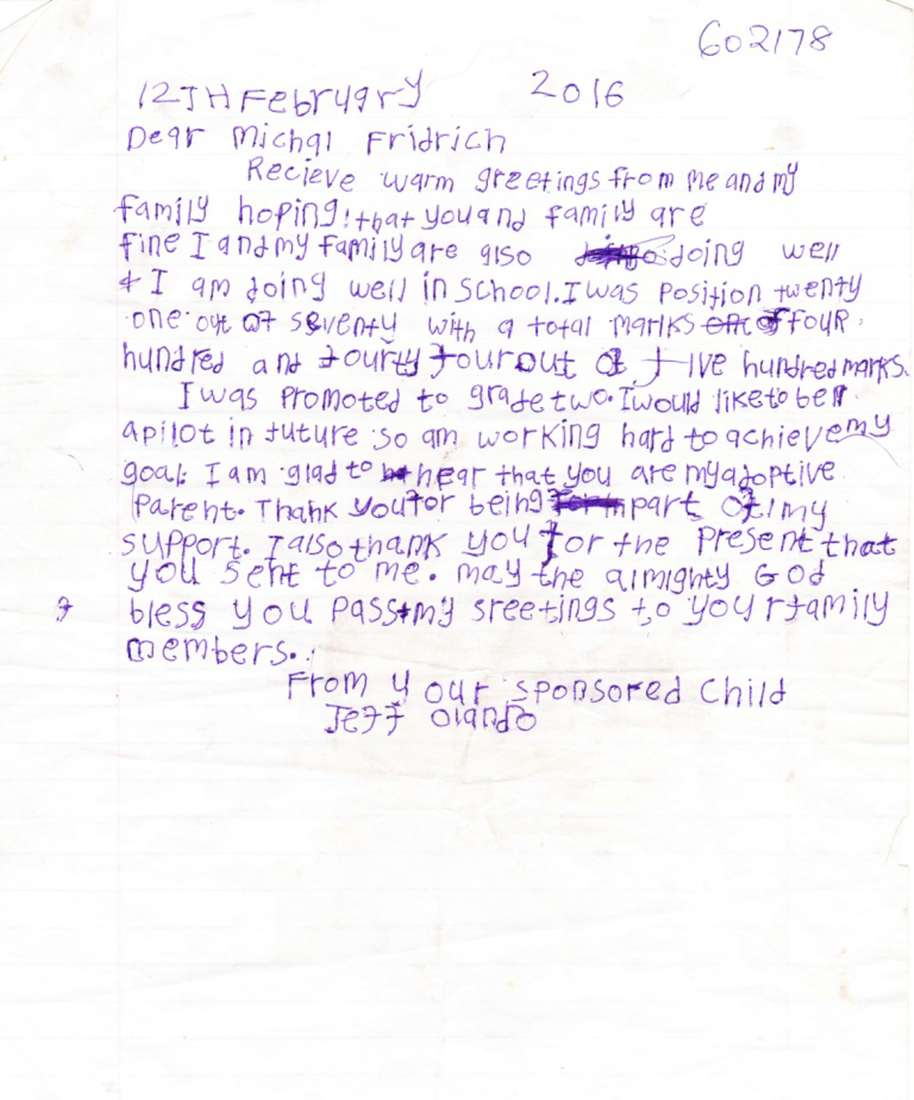 602178
12TH February 2016
Dear Michal Fridrich
Recieve warm greetings from me and my
family hoping! that you and family are
fine I and my family are also doing well
& I am doing well in school. I was position twenty
one out of seventy with a total marks of four
hundred and fourty four out of five hundred marks.
I was promoted to grade two. I would like to be
a pilot in future so am working hard to achieve my
goal. I am glad to hear that you are my adoptive
Parent. Thank you for being part of my
support. I also thank you for the present that
you sent to me. may the almighty God
bless you pass my greetings to your family
members.
From your sponsored child
Jeff Olando